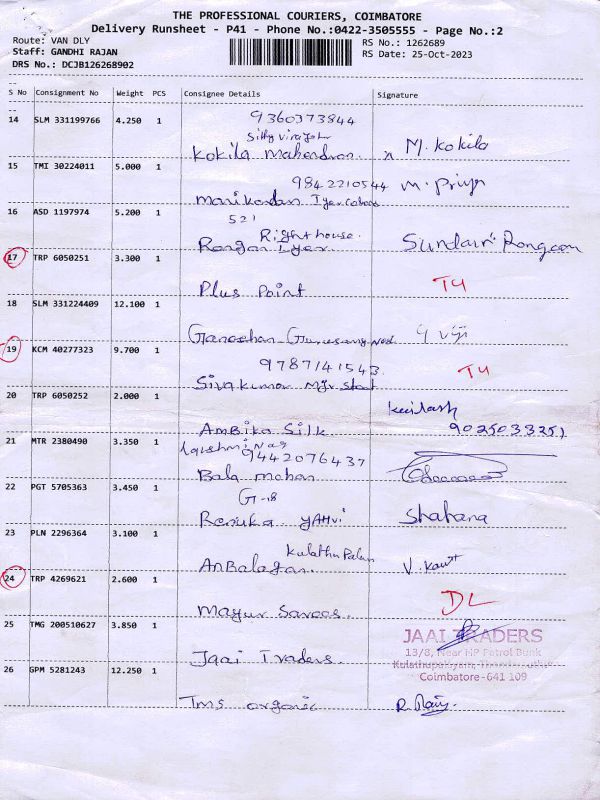 THE PROFESSIONAL COURIERS, COIMBATORE
Delivery Runsheet - P41 - Phone No.:0422-3505555 - Page No.:2
Route: VAN DLY
RS No.: 1262689
Staff: GANDHI RAJAN
RS Date: 25-Oct-2023
DRS No.: DCJB126268902
S No Consignment No Weight PCS Consignee Details Signature
14 SLM 331199766 4.250 1 9360373844
Kokila Mahendran M. Kokila
15 TMI 30224011 5.000 1 9842210544 M. Priya
Manikandan
16 ASD 1197974 5.200 1 521
Right house.
Rangan Iyer Sundari Rangan
17 TRP 6050251 3.300 1
Plus Point T4
18 SLM 331224409 12.100 1
Ganeshan viji
19 KCM 40277323 9.700 1 9787141543
Sivakumar Mjr Street T4
20 TRP 6050252 2.000 1
Ambika Silk 9025033251
21 MTR 2380490 3.350 1 Lakshmi Nag
9442076437
Bala mohan
22 PGT 5705363 3.450 1 G-18
Renuka Shahana
23 PLN 2296364 3.100 1
AnBalagan V. Kant
24 TRP 4269621 2.600 1
Mayur Sarees DL
25 TMG 200510627 3.850 1
JAAI TRADERS
13/8, Near HP Petrol Bunk
Jaai Traders
Coimbatore-641 109
26 GPM 5281243 12.250 1
Tms organic